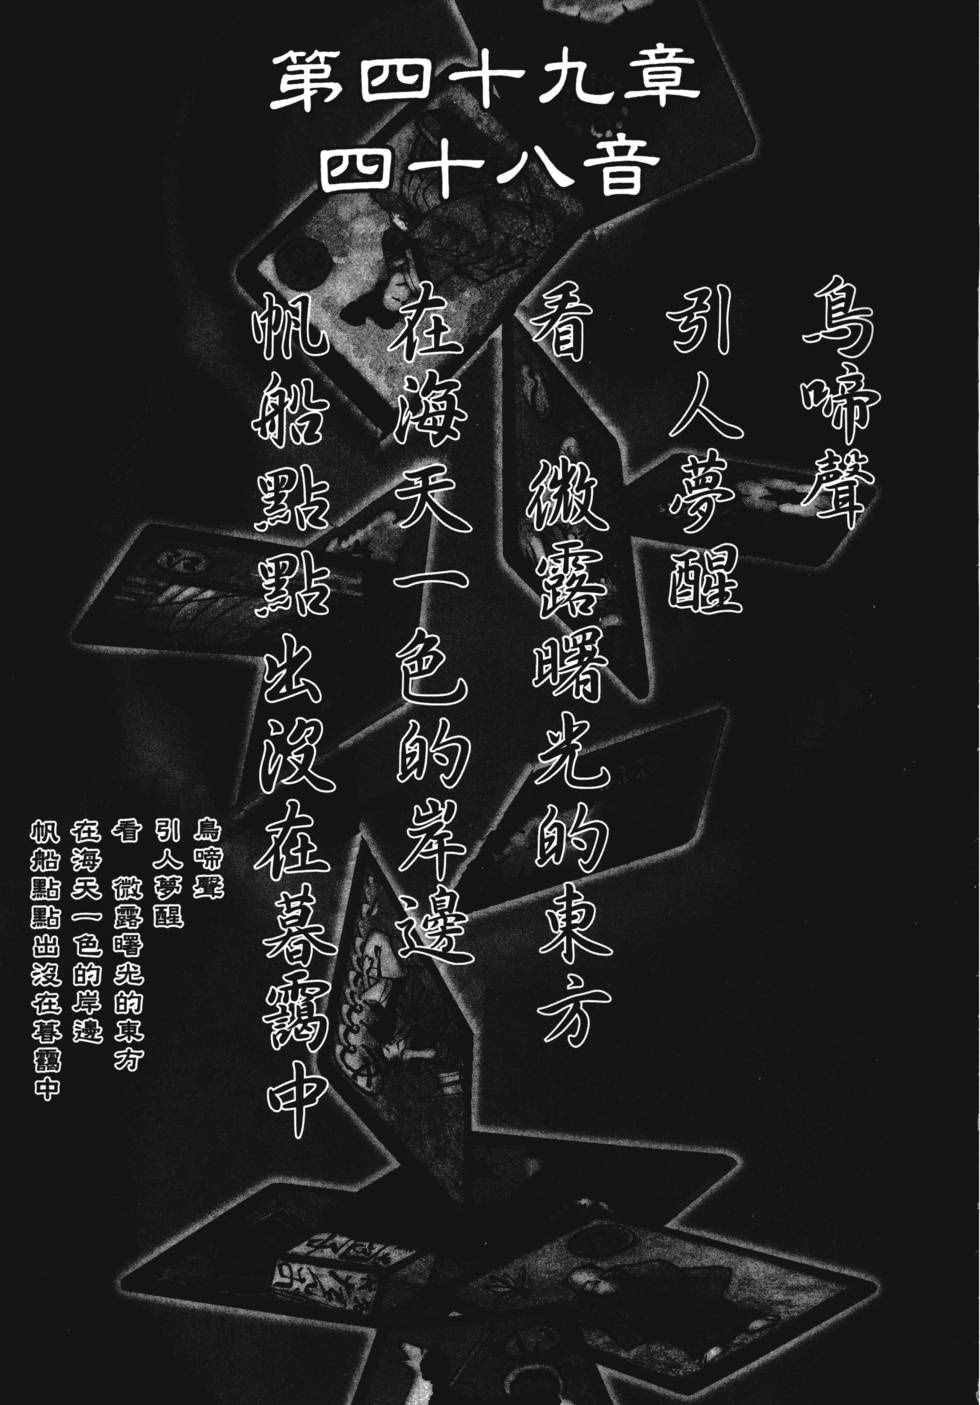 第四十九章
四十八音
鳥啼聲
引人夢醒
看　微露曙光的東方
在海天一色的岸邊
帆船點點出沒在暮靄中
鳥啼聲
引人夢醒
看　微露曙光的東方
在海天一色的岸邊
帆船點點出沒在暮靄中